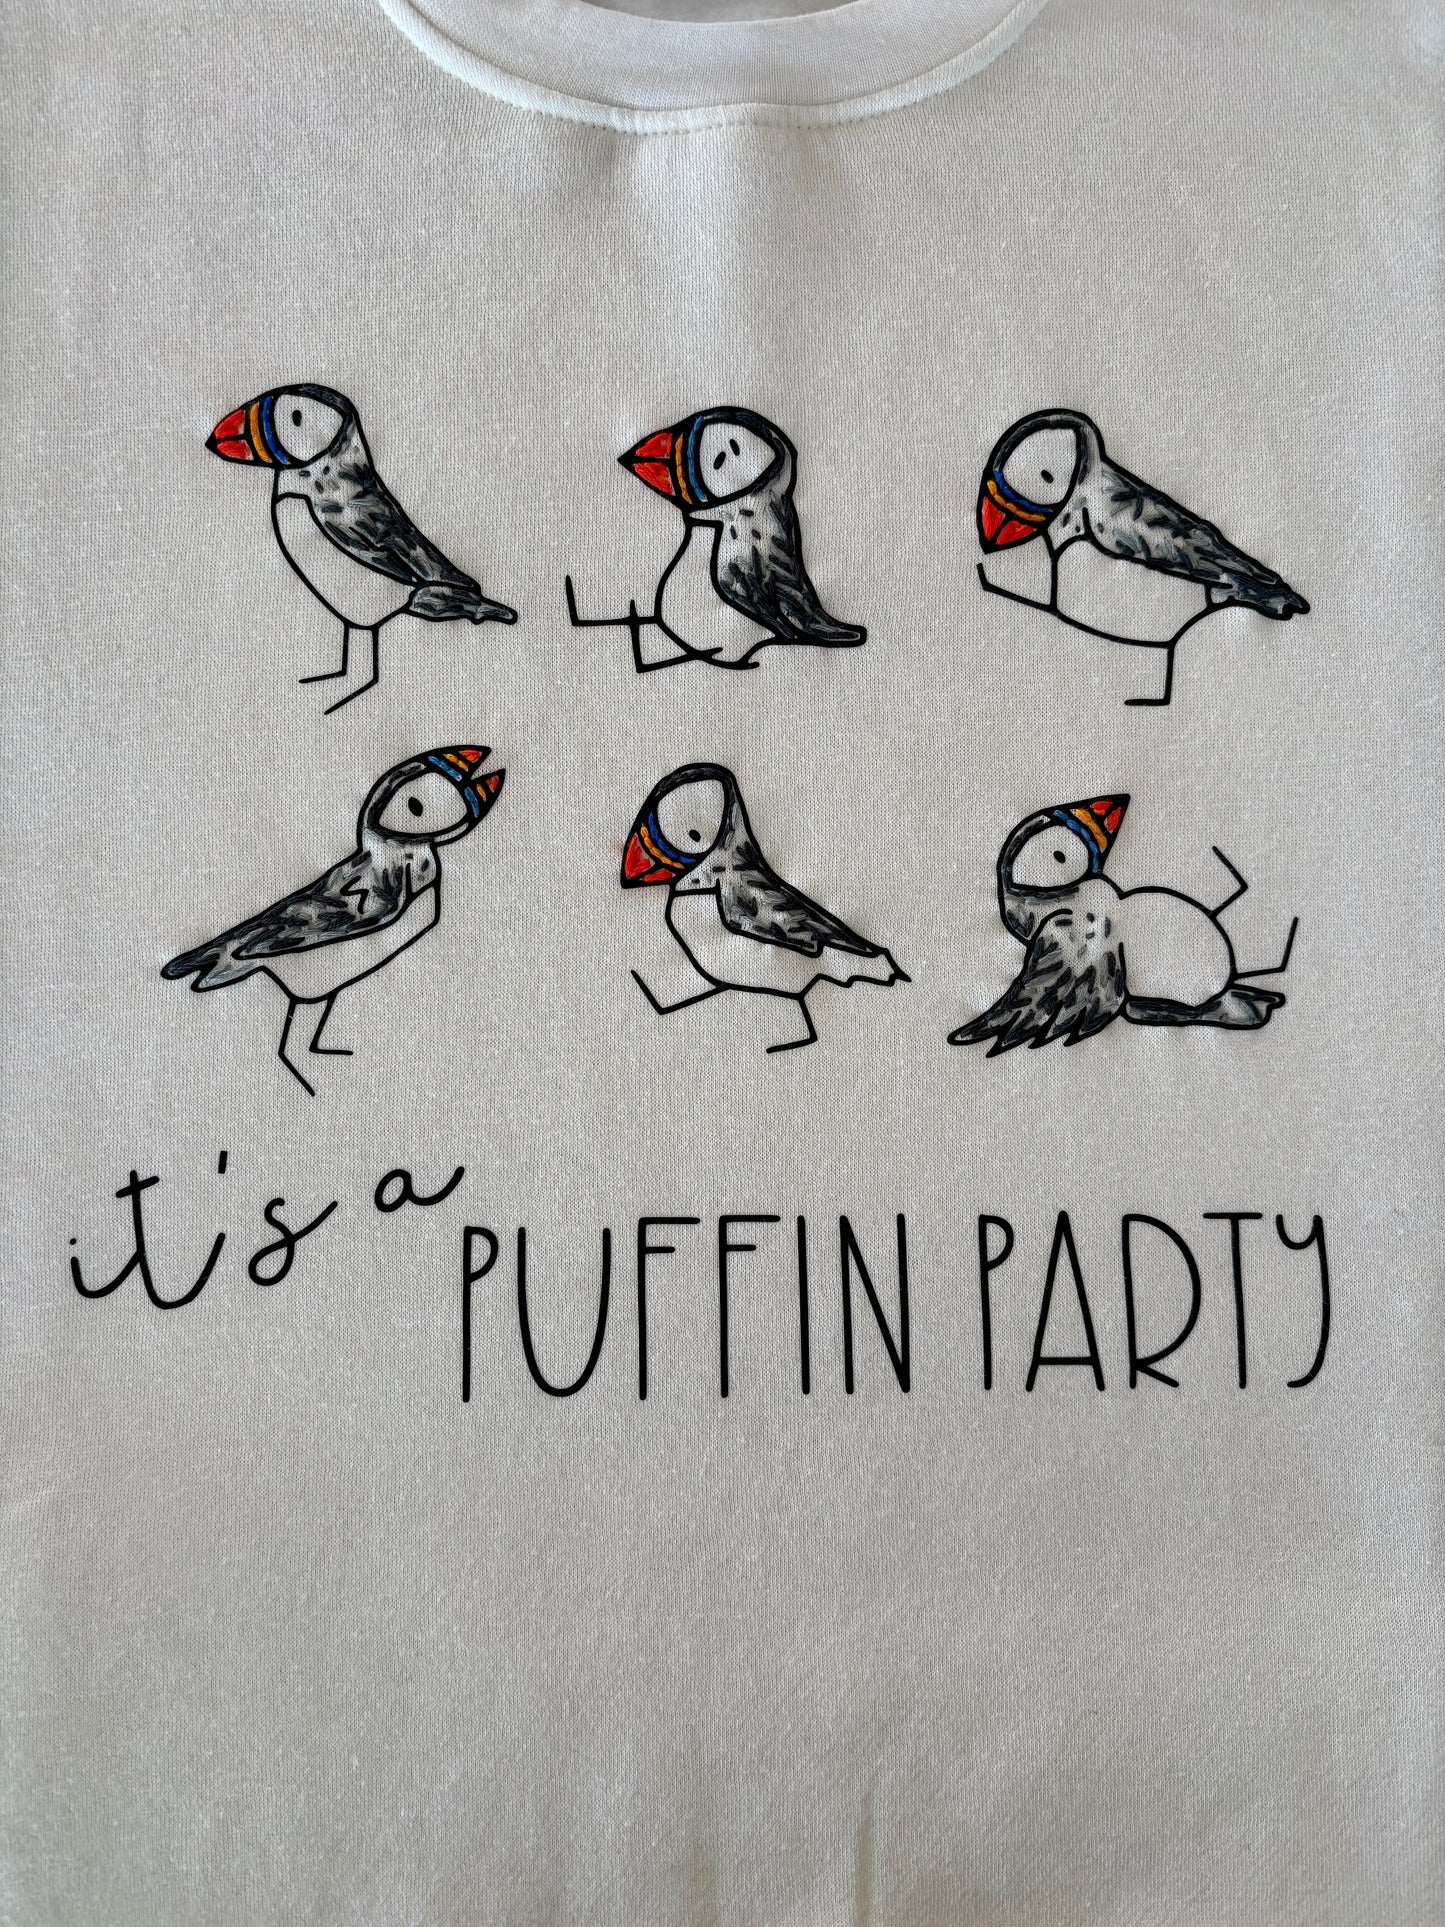 it's a PUFFIN PARTY